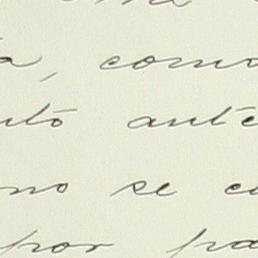 a, como
nto ante
no se co
por pa